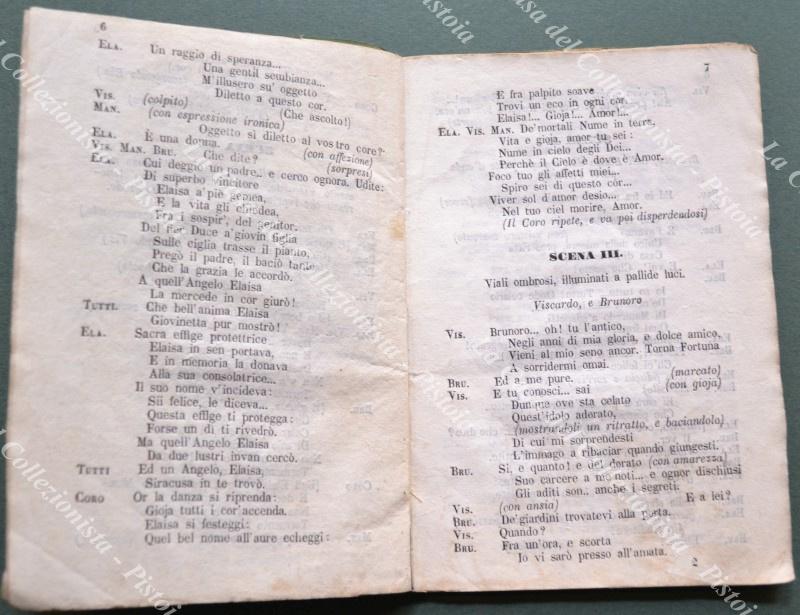 6
ELA. Un raggio di speranza...
Una gentil sembianza...
M'illusero su' oggetto
Diletto a questo cor.
VIS. (colpito) (Che ascolto!)
MAN. (con espressione ironica)
Oggetto sì diletto al vostro core?
ELA. È una donna. (con affezione)
VIS. MAN. BRU. Che dite? (sorpresi)
ELA. Cui deggio un padre.. e cerco ognora. Udite:
Di superbo vincitore
Elaisa a' piè gemea,
E la vita gli chiedea,
Fra i sospir', del genitor.
Del fier Duce a giovin figlia
Sulle ciglia trasse il pianto,
Pregò il padre, il baciò tanto
Che la grazia le accordò.
A quell'Angelo Elaisa
La mercede in cor giurò!
TUTTI. Che bell'anima Elaisa
Giovinetta pur mostrò!
ELA. Sacra effige protettrice
Elaisa in sen portava,
E in memoria la donava
Alla sua consolatrice...
Il suo nome v'incideva:
Sii felice, le diceva...
Questa effige ti protegga:
Forse un dì ti rivedrò.
Ma quell'Angelo Elaisa
Da due lustri invan cercò.
TUTTI Ed un Angelo, Elaisa,
Siracusa in te trovò.
CORO Or la danza si riprenda:
Gioja tutti i cor'accenda.
Elaisa si festeggi:
Quel bel nome all'aure echeggi:
7
E fra palpito soave
Trovi un eco in ogni cor.
Elaisa!.. Gioja!... Amor!...
ELA. VIS. MAN. De' mortali Nume in terra,
Vita e gioja, amor tu sei:
Nume in cielo degli Dei...
Perchè il Cielo è dove è Amor.
Foco tuo gli affetti miei...
Spiro sei di questo còr...
Viver sol d'amor desio...
Nel tuo ciel morire, Amor.
(Il Coro ripete, e va poi disperdendosi)
SCENA III.
Viali ombrosi, illuminati a pallide luci.
Viscardo, e Brunoro
VIS. Brunoro... oh! tu l'antico,
Negli anni di mia gloria, e dolce amico,
Vieni al mio seno ancor. Torna Fortuna
A sorridermi omai.
BRU. Ed a me pure. (marcato)
VIS. E tu conosci... sai (con gioja)
Dunque ove sta celato
Quest'idolo adorato,
(mostrandoli un ritratto, e baciandolo)
Di cui mi sorprendesti
L'immago a ribaciar quando giungesti.
BRU. Sì, e quanto! e del dorato (con amarezza)
Suo carcere a me noti... e ognor dischiusi
Gli aditi son.. anche i segreti.
VIS. (con ansia) E a lei?
BRU. De' giardini trovatevi alla porta.
VIS. Quando?
BRU. Fra un'ora, e scorta
Io vi sarò presso all'amata.
2
La Casa del Collezionista - Pistoia